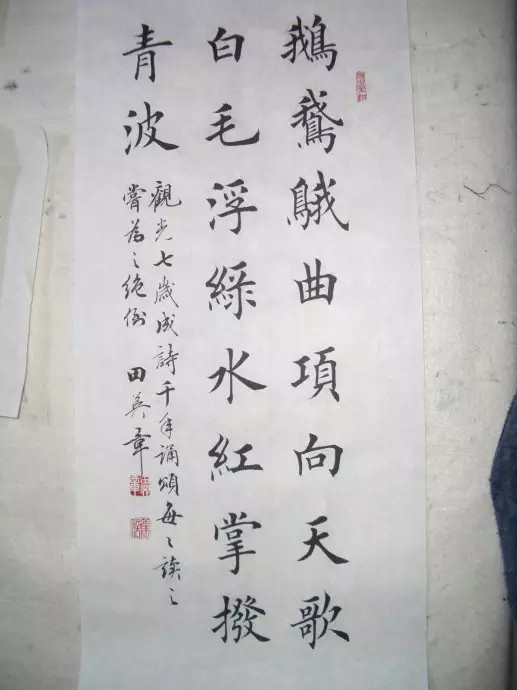 鵝鵞䳘曲項向天歌
白毛浮綠水紅掌撥
青波
觀光七歲成詩千年誦頌每〻讀之
嘗為之絕倒 田英章